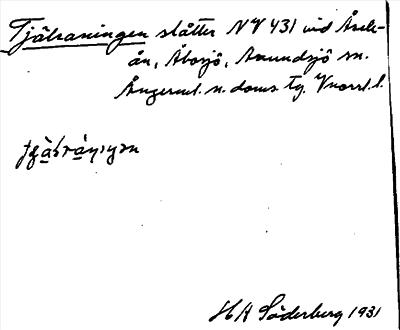 Tjälraningen slåtter NV 431 vid Åsele-
ån, Åbosjö, Anundsjö sn.
Ångerml. n. doms. tg. Vnorrl. l.
HA Söderberg 1931